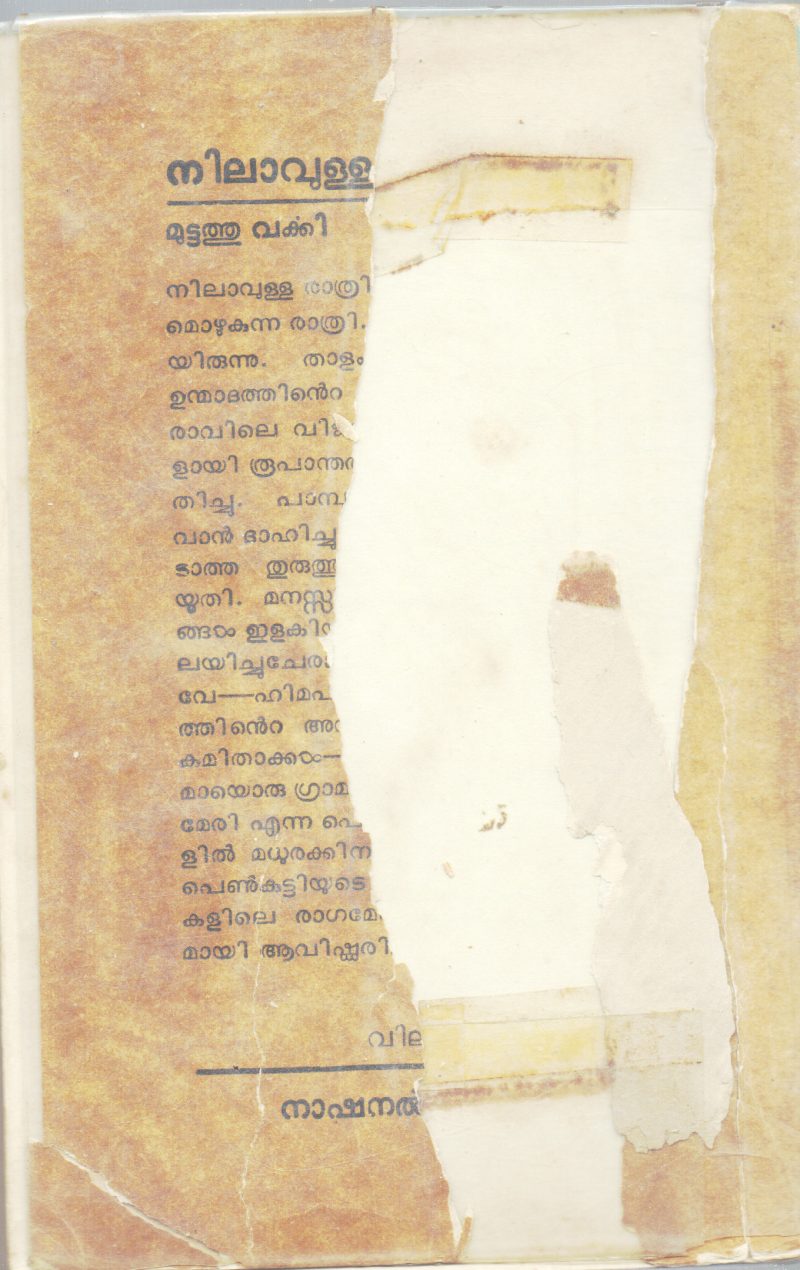 നിലാവുള്ള
മുട്ടത്തു വർക്കി
നിലാവുള്ള രാത്രി
മൊഴുകുന്ന രാത്രി.
യിരുന്നു. താളം
ഉന്മാദത്തിന്റെ
രാവിലെ
ളായി രൂപാന്തര
തിച്ചു. പാമ്പ
വാൻ ദാഹിച്ചു
ടാത്ത തുരുത്തു
യൂതി. മനസ്സു
ങ്ങൾ ഇളകി
ലയിച്ചുചേര
വേ—ഹിമപ
ത്തിന്റെ
കമിതാക്കൾ—
മായൊരു ഗ്രാമ
മേരി എന്ന പെ
ളിൽ മധുരക്കിന
പെൺകുട്ടിയുടെ
കളിലെ രാഗമേ
മായി ആവിഷ്ക്കരി
വില
നാഷനൽ